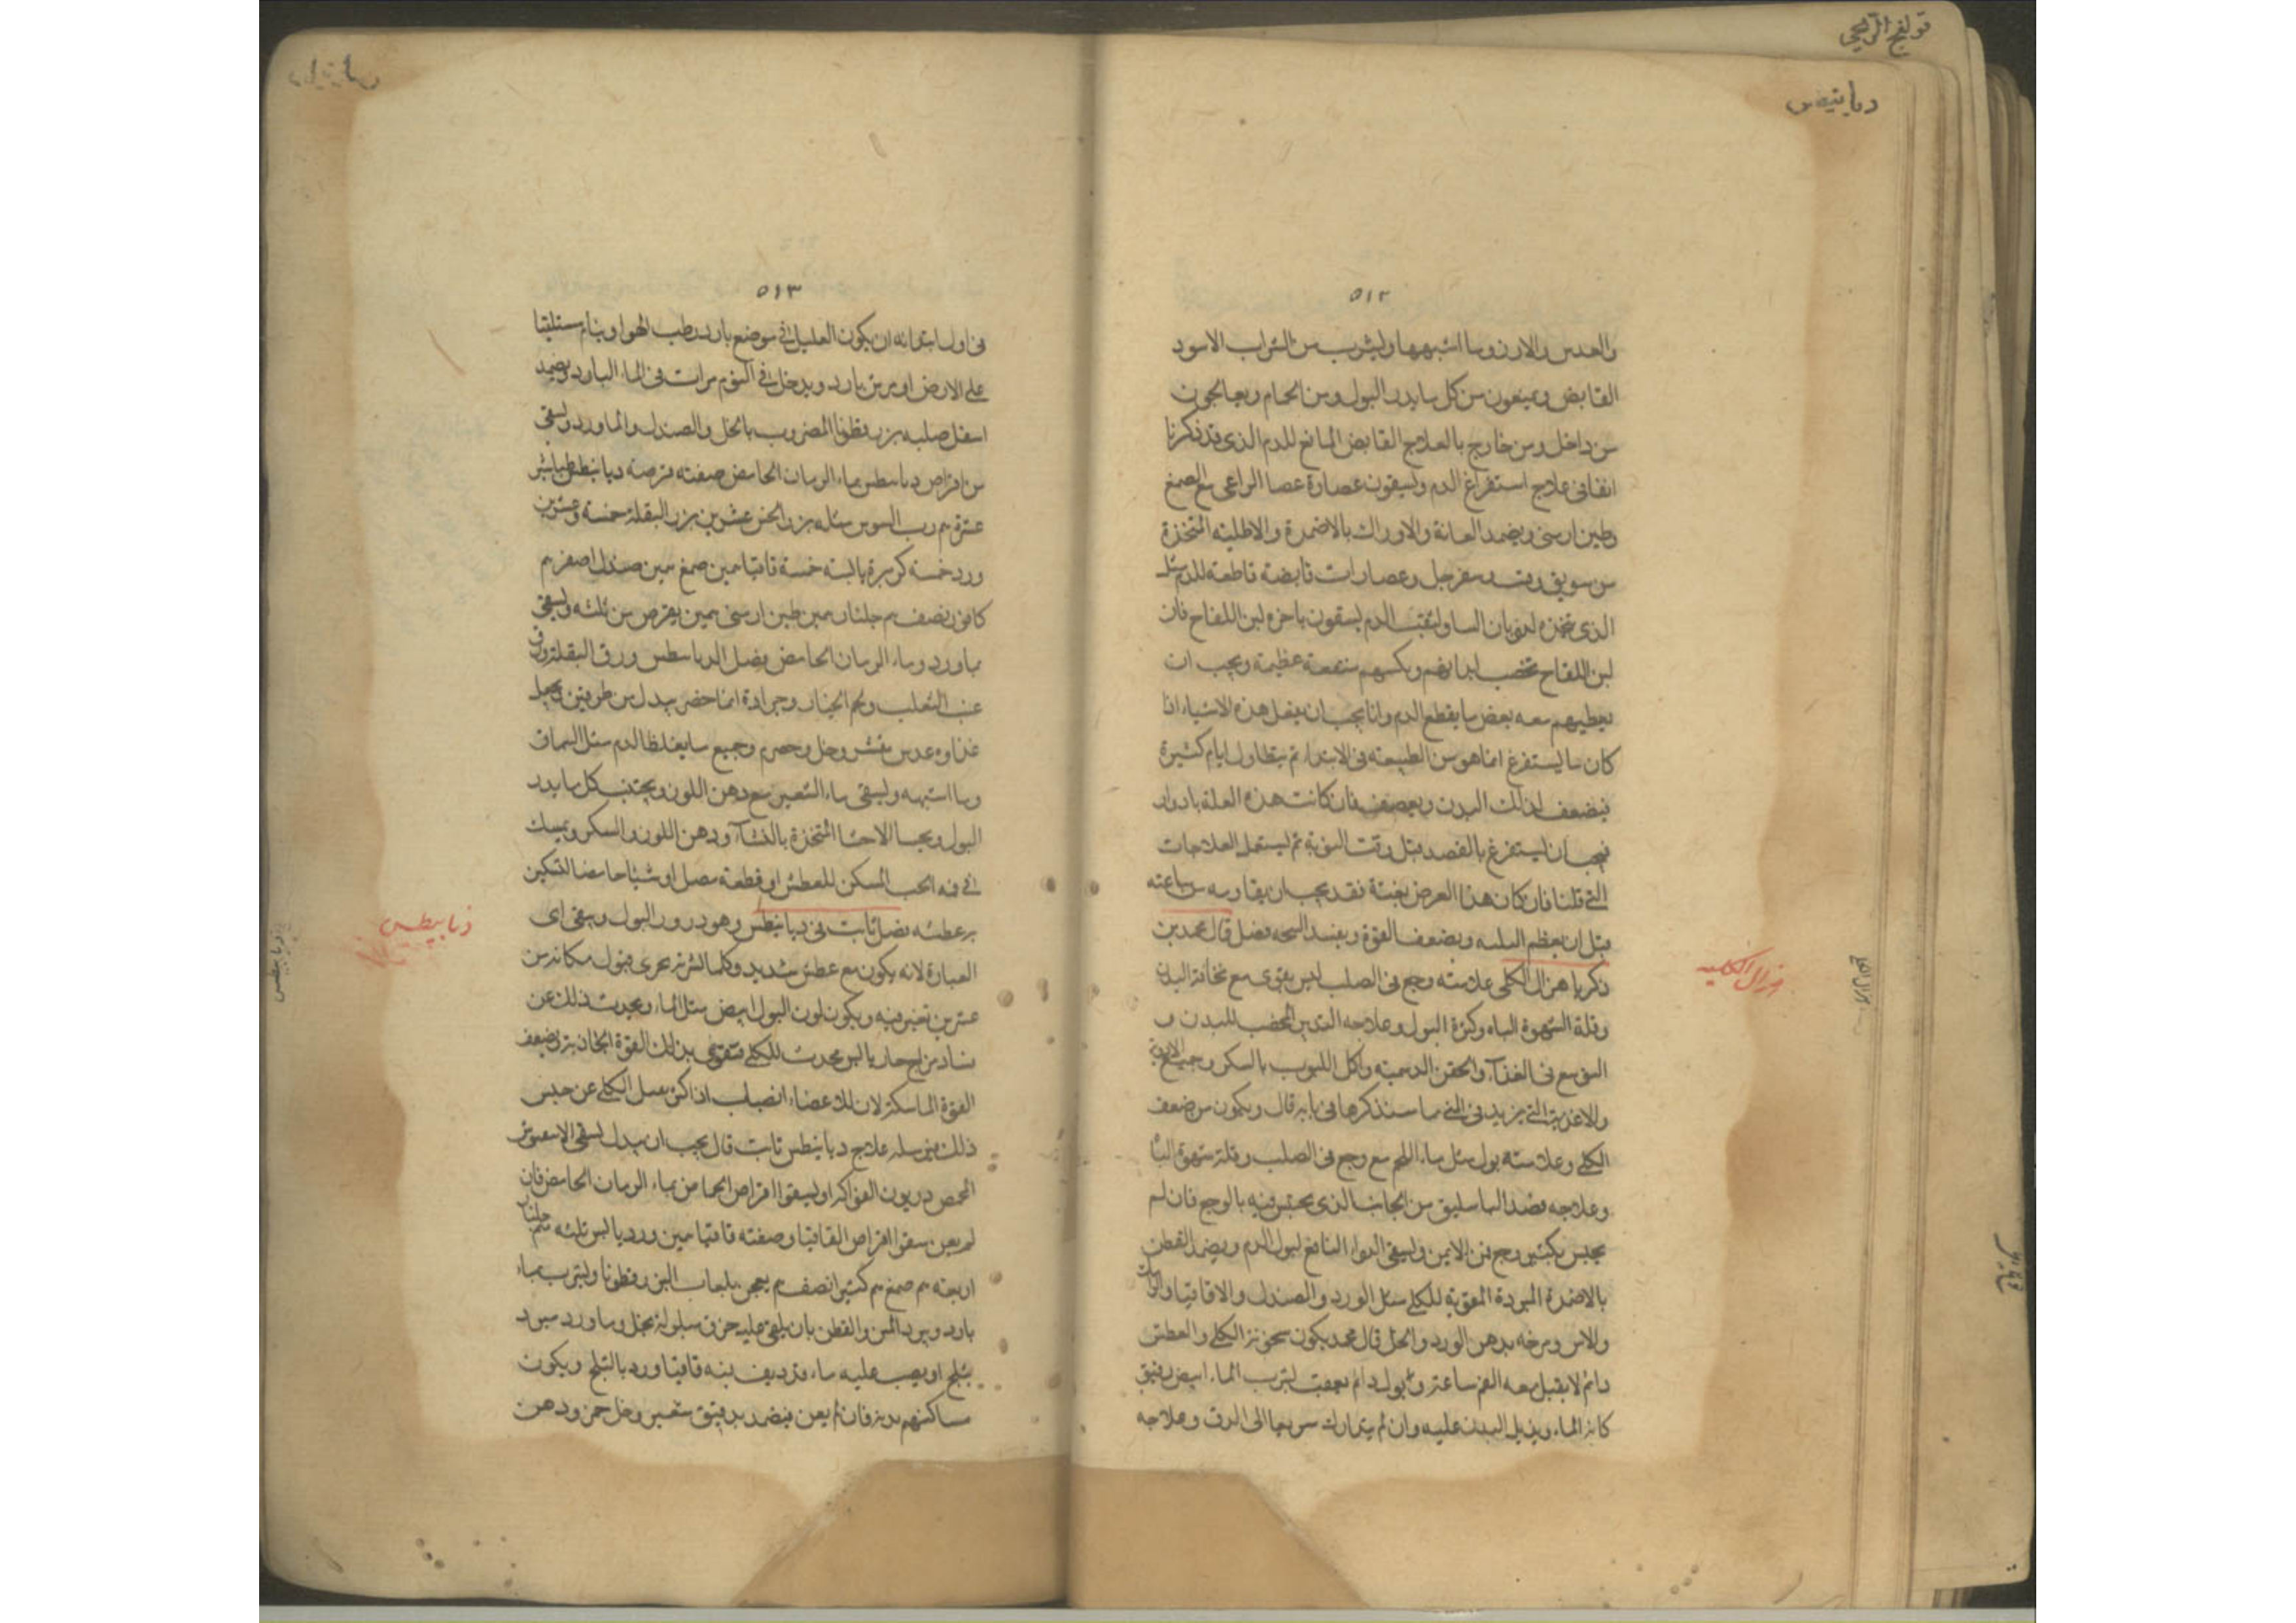 قولنج الريحي
ديابيطس
٥١٢
والعدس والارز وما اشبهها وليشرب من الشراب الاسود
القابض ويمنعون من كل ما يدر البول ومن الحمام ويعالجون
من داخل ومن خارج بالعلاج القابض المانع للدم الذي قد ذكرنا
انفا في علاج استفراغ الدم ويسقون عصارة عصا الراعي مع الصمغ
وطين ارمني ويضمد العانة والاوراك بالاضمدة والاطلية المتخذة
من سويق وقسب وسفرجل وعصارات قابضة قاطعة للدم مثل
الذي نتخذه لذوبان الدم يسقون باخره لبن اللقاح فان
لبن اللقاح تخصب ابدانهم ويكسبهم منفعة عظيمة ويجب ان
يعطيهم معه بعض ما يقطع الدم وانا يجب ان يفعل هذه الاشياء اذا
كان ما يستفرغ انما هو من الطبيعة في الابتداء ثم يتطاول ايام كثيرة
فيضعف لذلك البدن ويعصف فان كانت هذه العلة بادوار
فيجب ان يستفرغ بالفصد قبل وقت النوبة ثم ليستعمل العلاجات
التي قلنا فان كان هذا العرض بغتة فقد يجب ان يقاومه من ساعته
قبل ان يعظم البلية ويضعف القوة ويفسد السحنه فصل قال محمد بن
زكريا هزال الكلى علامته وجع في الصلب ليس بقوي مع نحافة البدن
وقلة الشهوة الباه وكثرة البول وعلاجه التدبير المخصب للبدن و
التوسع في الغذاء والحقن الدسمة واكل اللبوب بالسكر وجميع الادوية
والاغذية التي يزيد في المني ما سنذكرها في بابه قال ويكون من ضعف
الكلى وعلامته بول مثل ماء اللحم مع وجع في الصلب وقلة شهوة الباه
وعلاجه فصد الباسليق من الجانب الذي يحتبس فيه بالوجع فان لم
يحبس بكثير وجع فمن الايمن وليسقى الدواء النافع لبول الدم ويضمد القطن
بالاضمدة المبردة المقوية للكلى مثل الورد والصندل والاقاقيا والرامك
والاس ومرخه بدهن الورد والخل قال محمد يكون سخونة الكلى والعطش
دائم لا يقبل معه الفم ساعة وبول دائم بعقب شرب الماء ابيض رقيق
كانه الماء ويذبل البدن عليه وان لم يتدارك سريعا الى الدق وعلاجه
هزال الكليه
٥١٣
في اول ابتدائه ان يكون العليل في موضع بارد رطب الهوا وينام مستلقيا
على الارض او سرير بارد ويدخل في اليوم مرات في الماء البارد ويضمد
اسفل صلبه بزرقطونا المضروب بالخل والصندل والماورد ويسقى
من اقراص ديابيطس بماء الرمان الحامض صفته قرصة ديابيطس طباشير
عشرة رب السوس مثله بزر الخس عشرين بزر البقلة خمسة وعشرين
ورد خمسة كزبرة يابسة خمسة قاقيا صمغ صندل اصفر
كافور نصف جلنار طين ارمني يقرص من ثلثه ويسقى
بماورد وماء الرمان الحامض فصل الديابيطس ورق البقلة وورق
عنب الثعلب ولحم الخيار وجرادة انما حضر يبدل من طريقين ويجعل
غذاوه عدس مقشر وخل وحصرم وجميع ما يغلظ الدم مثل السماق
وما اشبهه وليسقى ماء الشعير مع دهن اللوز ويجتنب كل ما يدر
البول ويحسا الاحسا المتخذة بالنشاء ودهن اللوز والسكر ويمسك
في فمه الحب المسكن للعطش او قطعة مصل او شيئا حامضا لتسكين
عطشه فصل ثابت في ديابيطس وهو درور البول وبقي اى
العبارة لانه يكون مع عطش شديد وكلما شربه يجري فيبول مكانه من
غير تغير فيه ويكون لون البول ابيض مثل الماء ويحدث ذلك عن
فساد مزاج حار يابس يحدث للكلى فتقوى بذلك القوة الجاذبة ويضعف
القوة الماسكة لان للاعضاء انصباب اذا كثر يميل الكلى عن حبس
ذلك فيرسله علاج ديابيطس ثابت قال يجب ان يبدل
الحمص دريون الفواكه او ليسقوا اقراص الحماض بماء الرمان الحامض فان
لم يعن سقوا اقراص القاقيا وصفته قاقيا ورد يابس ثلثه جلنار
اربعة صمغ كثيرا نصف يعجن بلعاب البزرقطونا وليشرب بماء
بارد ويبرد المتن والقطن بان يلقى عليه خرق مبلولة بخل وماورد مبرد
بثلج او يصب عليه ماء قد ديف فيه قاقيا ورد بالثلج ويكون
مساكنهم بردة فان لم يعن فيضمد بدقيق شعير وخل خمر ودهن
ذيابيطس
ديابيطس